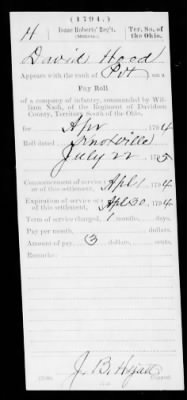 (1794.)
H | Isaac Roberts' Reg't. | Ter. So. of the Ohio.
David Hood
Appears with the rank of Pvt
Pay Roll
of a company of infantry, commanded by Wil-
liam Nash, of the Regiment of Davidson
County, Territory South of the Ohio,
for Apr, 1794
Roll dated Knoxville
July 22, 1795
Commencement of service of this settlement, Apl 1, 1794
Expiration of service of this settlement, Apl 30, 1794
Term of service charged, 1 months, days.
Pay per month, dollars, cents.
Amount of pay, (3) dollars, cents.
Remarks:
J. B. Hyatt
Copyist.